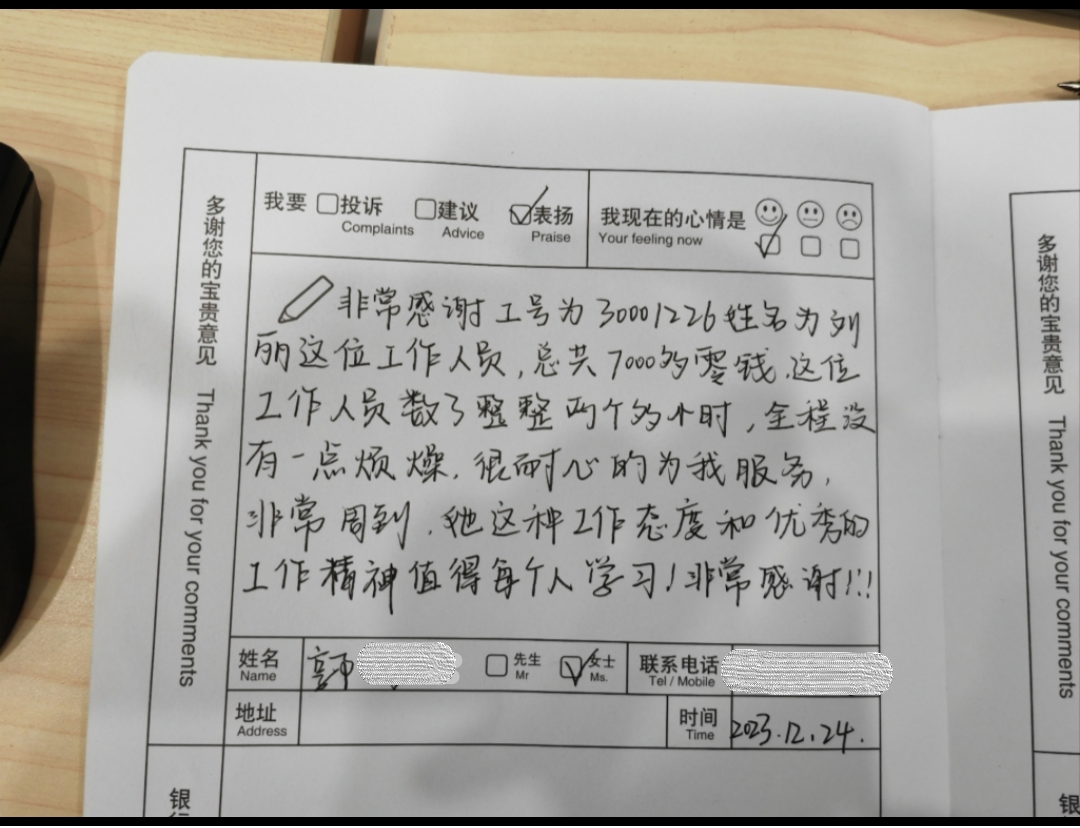 多谢您的宝贵意见 Thank you for your comments
我要 投诉 建议 表扬
Complaints Advice Praise
我现在的心情是
Your feeling now
非常感谢工号为30001226姓名为刘
丽这位工作人员,总共7000多零钱,这位
工作人员数了整整两个多小时,全程没
有一点烦燥,很耐心的为我服务,
非常周到,她这种工作态度和优秀的
工作精神值得每个人学习!非常感谢!!!
姓名 先生 女士 联系电话
Name Mr Ms. Tel / Mobile
地址 时间 2023.12.24.
Address Time
银
多谢您的宝贵意见 Thank you for your comments
银